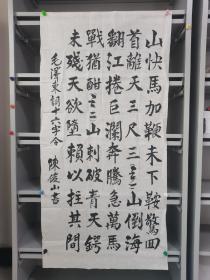 山快馬加鞭未下鞍驚回
首離天三尺三山倒海
翻江捲巨瀾奔騰急萬馬
戰猶酣山刺破青天鍔
未殘天欲墮賴以拄其間
毛澤東詞十六字令 陳俊山書